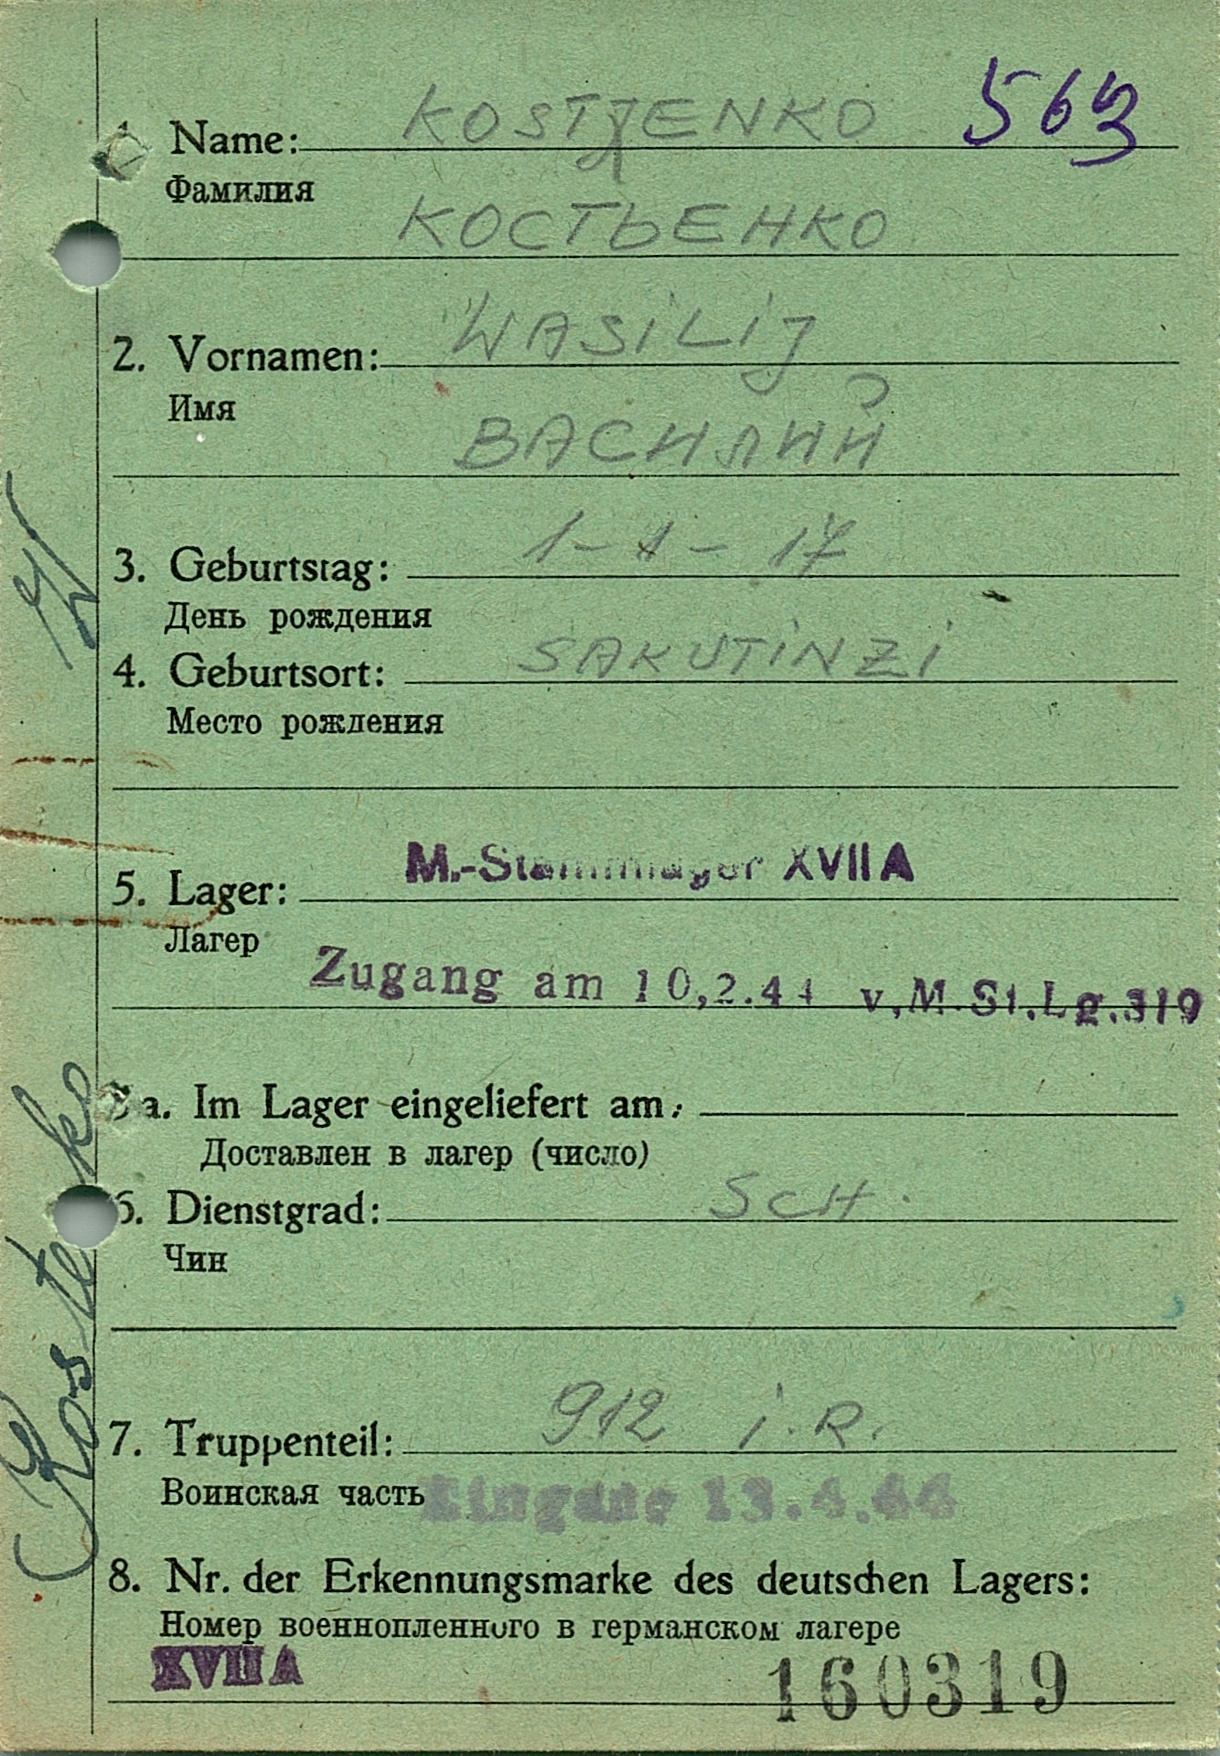 KOSTJENKO 563
Name:
Фамилия
КОСТЬЕНКО
WASILIJ
2. Vornamen:
Имя
ВАСИЛИЙ
1-1-17
3. Geburtstag:
День рождения
SAKUTINZI
4. Geburtsort:
Место рождения
M.-Stammlager XVII A
5. Lager:
Лагер
Zugang am 10.2.44 v.M.St.Lg.319
a. Im Lager eingeliefert am:
Доставлен в лагер (число)
SCH.
6. Dienstgrad:
Чин
912 i.R.
7. Truppenteil:
Воинская часть
Eingang 13.4.44
8. Nr. der Erkennungsmarke des deutschen Lagers:
Номер военнопленного в германском лагере
XVII A 160319